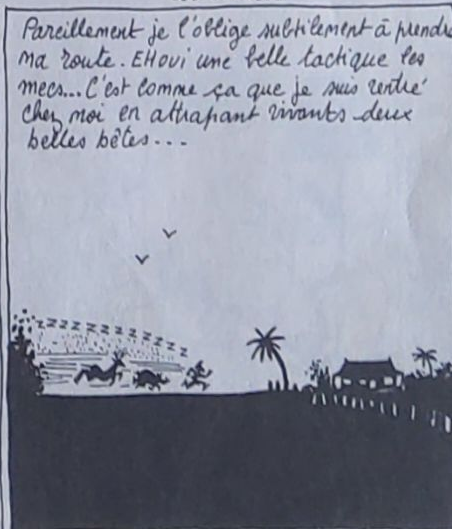 Pareillement je l'oblige subtilement à prendre
ma route. EHOUI une belle tactique les
mecs... C'est comme ça que je suis rentré
chez moi en attrapant vivants deux
belles bêtes...
zzzzzzzzzzzz